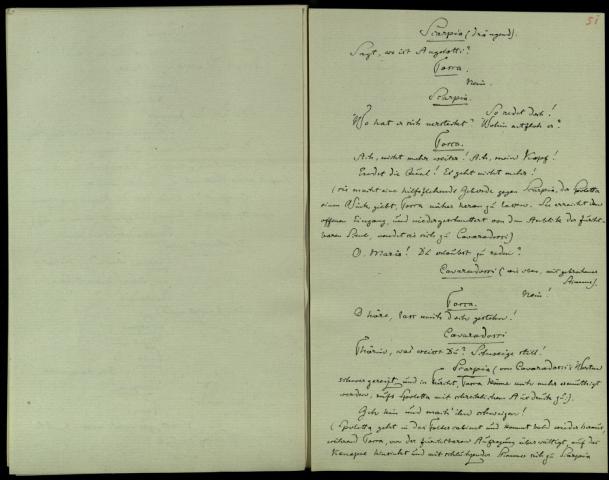 51
Scarpia (drängend).
Sagt, wo ist Angelotti?
Tosca.
Nein.
Scarpia.
So redet doch!
Wo hat er sich versteckt? Wohin entfloh er?
Tosca.
Ach, nicht mehr weiter! Ach, mein Kopf!
Endet die Qual! Es geht nicht mehr!
(sie macht eine hilfeflehende Geberde gegen Scarpia, der Spoletta
einen Wink giebt, Tosca näher heran zu lassen. Sie erreicht den
offenen Eingang, und niedergeschmettert von dem Anblicke der furcht-
baren Scene, wendet sie sich zu Cavaradossi)
O, Mario! Du erlaubst zu reden?
Cavaradossi (wie oben, mit gebrochener
Stimme).
Nein!
Tosca.
O höre, lass mich doch gestehen!
Cavaradossi
Thörin, was weisst Du? Schweige still!
Scarpia (von Cavaradossi's Worten
schwer gereizt, und in Furcht, Tosca könne noch mehr ermuthigt
werden, ruft Spoletta mit schrecklichem Ausdrucke zu).
Geh hin und mach' ihn schweigen!
(Spoletta geht in das Foltercabinet und kommt bald wieder heraus,
während Tosca, von der furchtbaren Aufregung überwältigt, auf das
Kanapee hinsinkt und mit schluchzender Stimme sich zu Scarpia